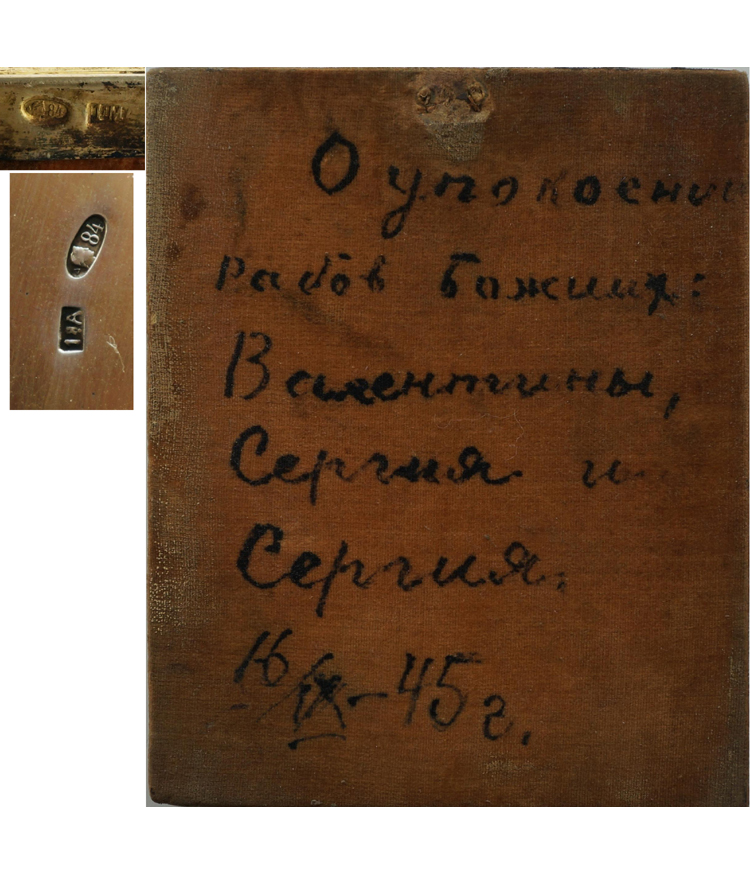 84
О упокоении
рабов Божиих:
Валентины,
Сергия и
Сергия.
16/IX-45 г.